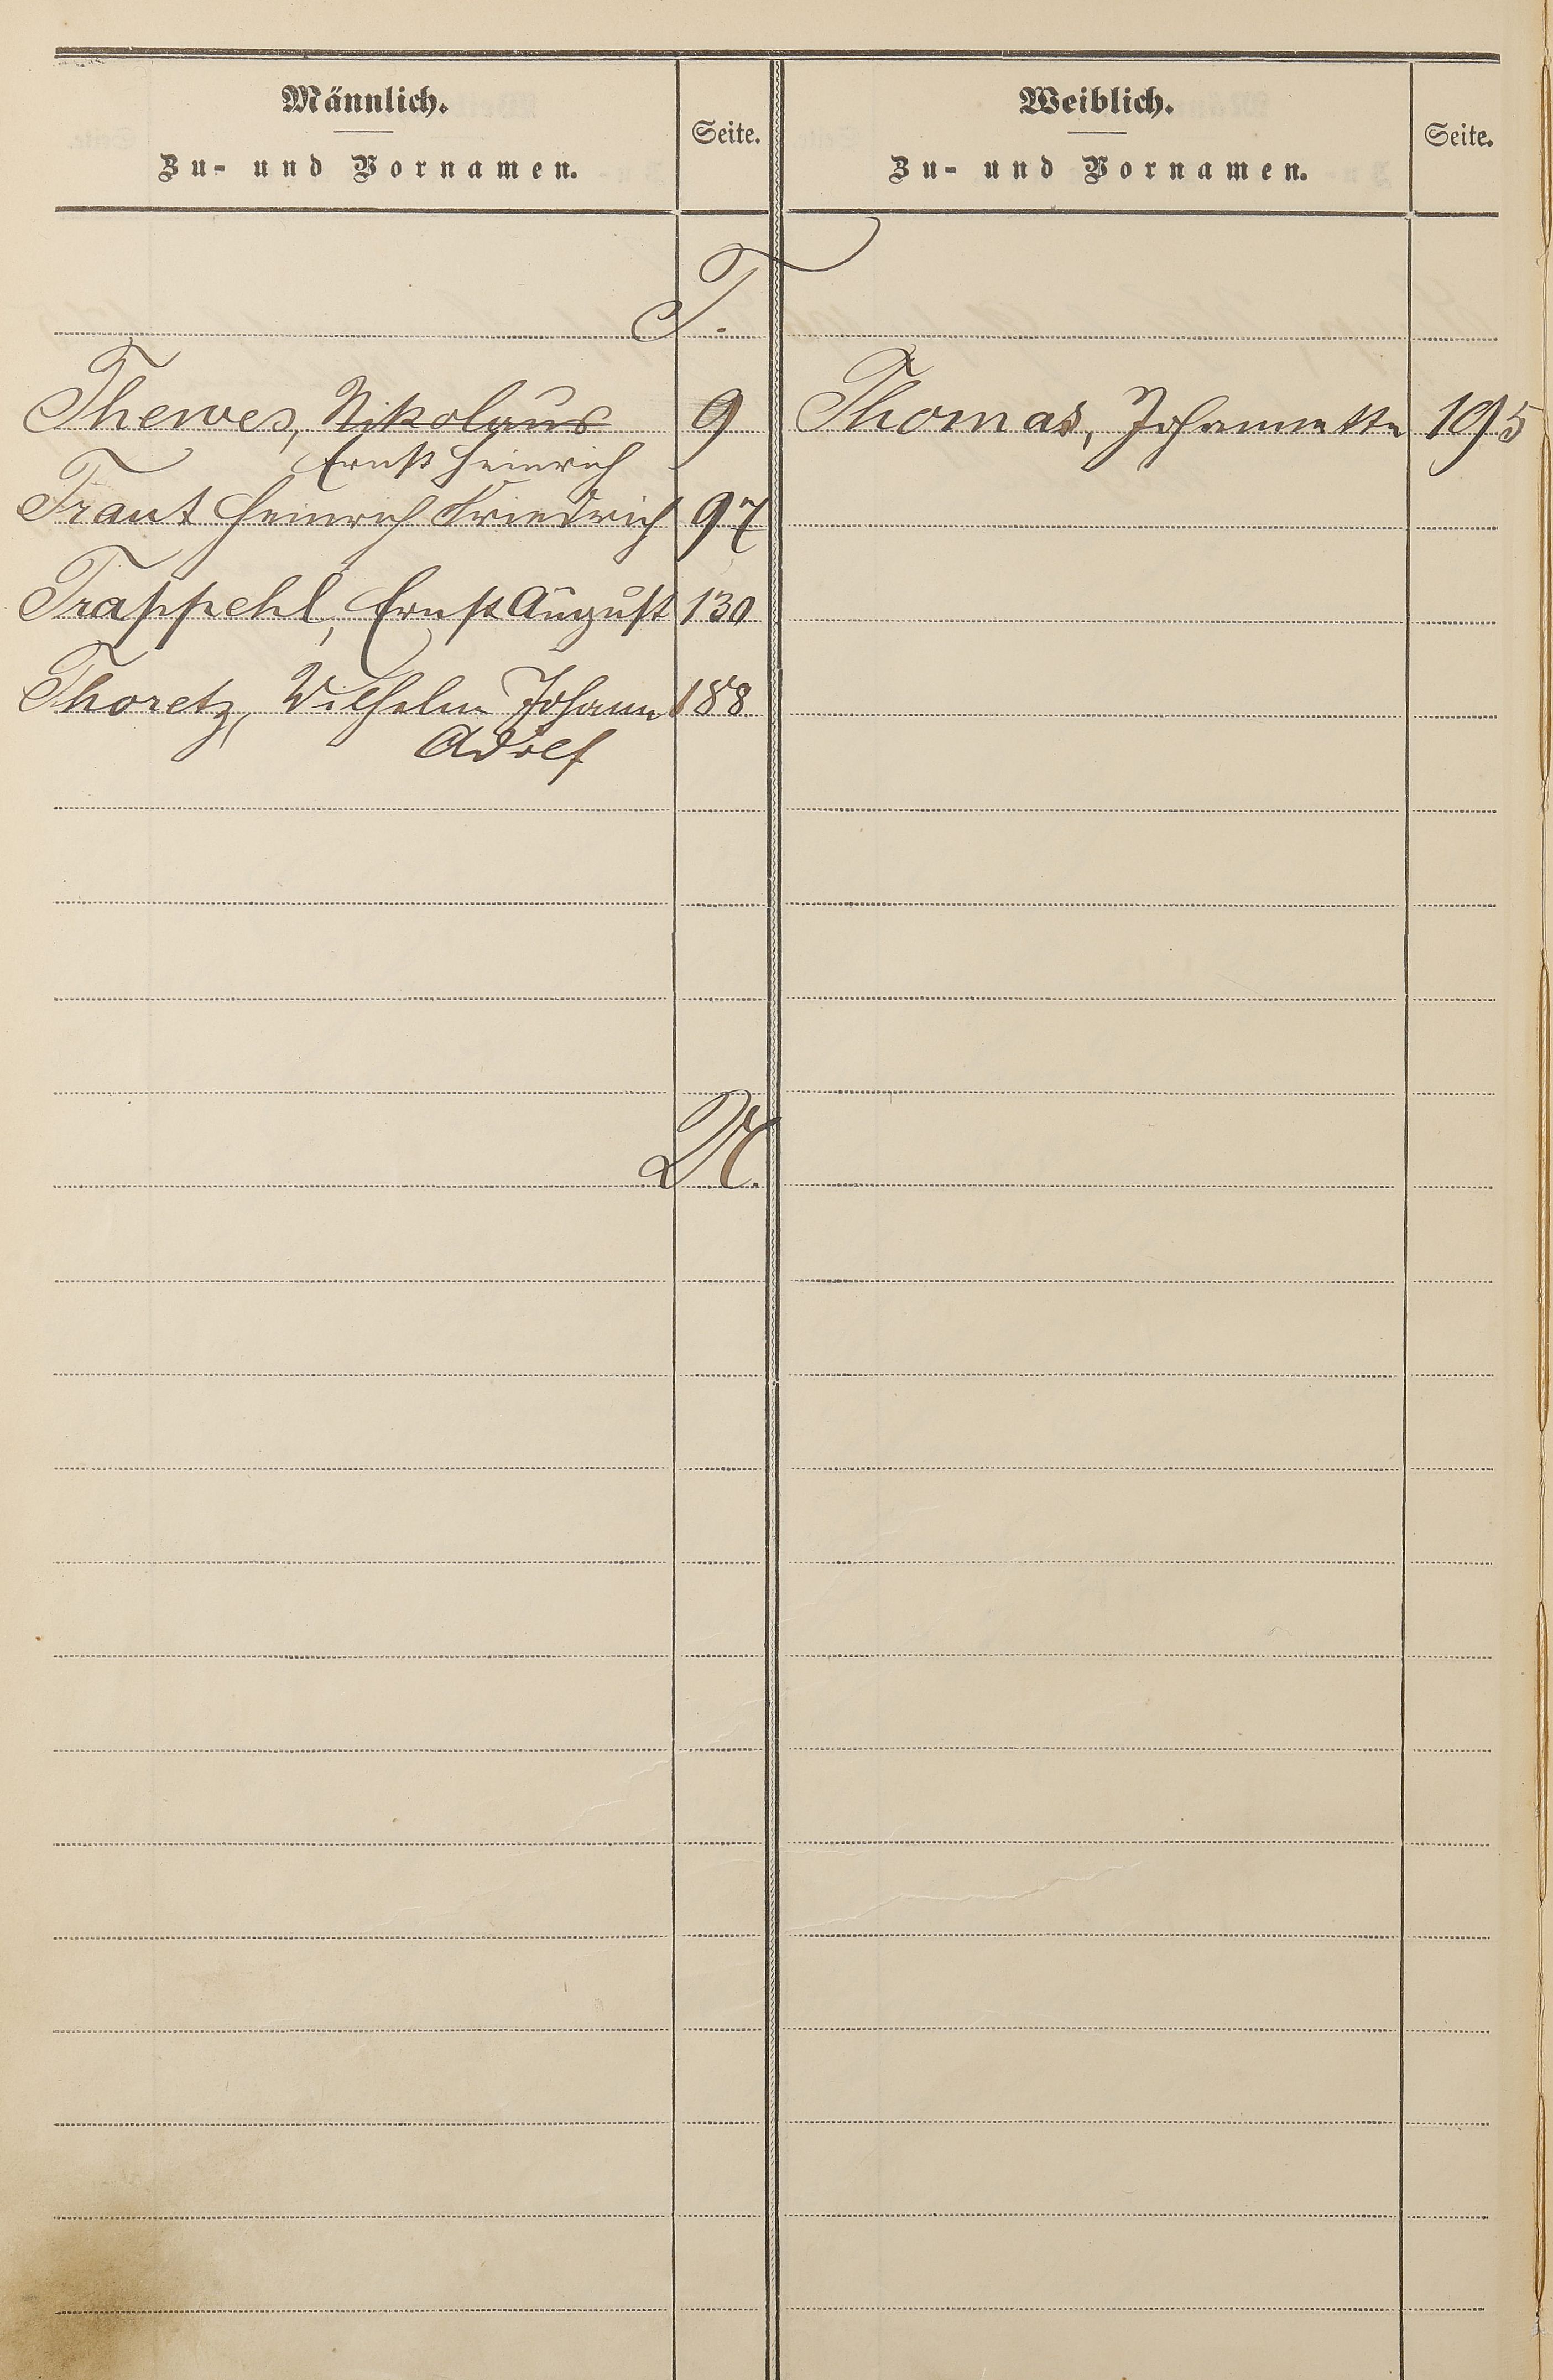 Männlich.
Zu- und Vornamen.
Seite.
Weiblich.
Zu- und Vornamen.
Seite.
T.
Thewes, Nikolaus 9 Thomas, Johannette 195
Ernst Heinrich
Traut Heinrich Friedrich 97
Trappehl, Ernst August 130
Thoretz, Wilhelm Johann 188
Adolf
U.